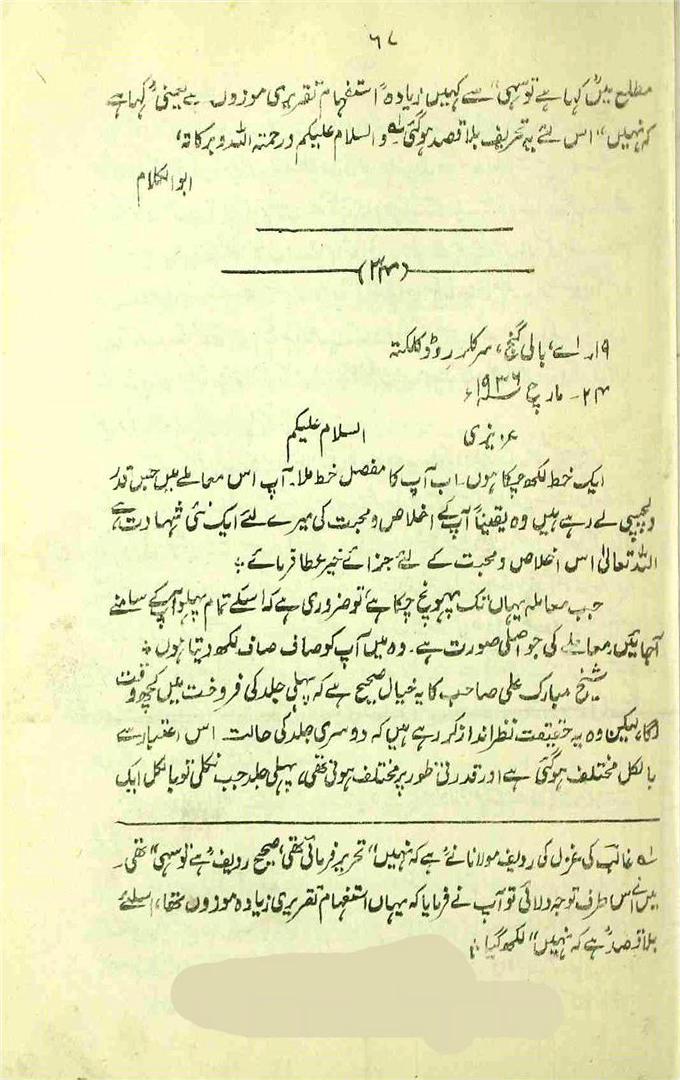 ۶۷
مطلع میں "کہا ہے تو سہی" سے کہیں زیادہ استفہام تقریری موزوں ہے یعنی "کہا ہے
کہ نہیں" اس لئے یہ تحریف بلا قصد ہوگئی ۱ والسلام علیکم ورحمتہ اللہ وبرکاتہ،
ابوالکلام
(۲۴)
۱۹ـ اے، بالی گنج، سرکلر روڈ کلکتہ
۲۴ـ مارچ ۱۹۳۶ء
عزیزی السلام علیکم
ایک خط لکھ چکا ہوں۔ اب آپ کا مفصل خط ملا۔ آپ اس معاملے میں جس قدر
دلچسپی لے رہے ہیں وہ یقیناً آپ کے اخلاص و محبت کی میرے لئے ایک نئی شہادت ہے
اللہ تعالیٰ اس اخلاص و محبت کے لئے جزائے خیر عطا فرمائے ۔
جب معاملہ یہاں تک پہونچ چکا ہے، تو ضروری ہے کہ اسکے تمام پہلو آپ کے سامنے
آجائیں، معاملے کی جو اصلی صورت ہے۔ وہ میں آپ کو صاف صاف لکھ دیتا ہوں ۔
شیخ مبارک علی صاحب کا یہ خیال صحیح ہے کہ پہلی جلد کی فروخت میں کچھ وقت
لگا، لیکن وہ یہ حقیقت نظر انداز کر رہے ہیں کہ دوسری جلد کی حالت اس اعتبار سے
بالکل مختلف ہوگئی ہے اور قدرتی طور پر مختلف ہونی تھی، پہلی جلد جب نکلی تو بالکل ایک
۱ غالب کی غزل کی ردیف مولانا نے "ہے کہ نہیں" تحریر فرمائی تھی، صحیح ردیف "ہے تو سہی" تھی۔
میں نے اس طرف توجہ دلائی تو آپ نے فرمایا کہ یہاں استفہام تقریری زیادہ موزوں تھا، اسلئے
بلا قصد "ہے کہ نہیں" لکھ گیا ۔